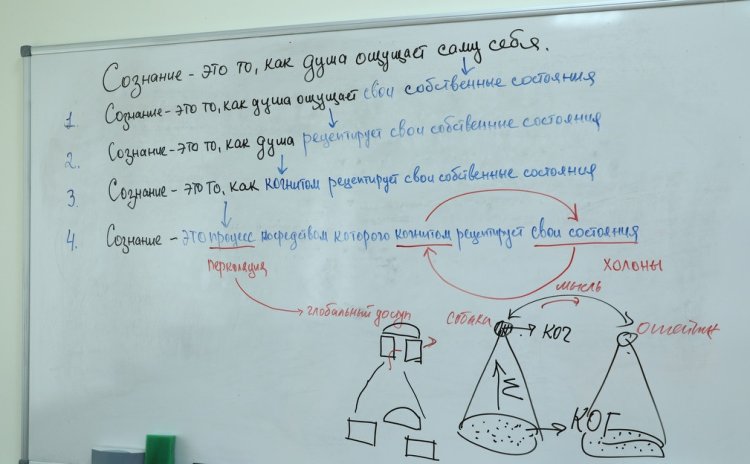 Сознание - это то, как душа ощущает саму себя.
1. Сознание - это то, как душа ощущает свои собственные состояния
2. Сознание - это то, как душа рецептирует свои собственные состояния
3. Сознание - это то, как когнитом рецептирует свои собственные состояния
4. Сознание - это процесс посредством которого когнитом рецептирует свои состояния
перколяция
холоны
мысль
глобальный доступ
собака
КОГ
ошейник
КОГ